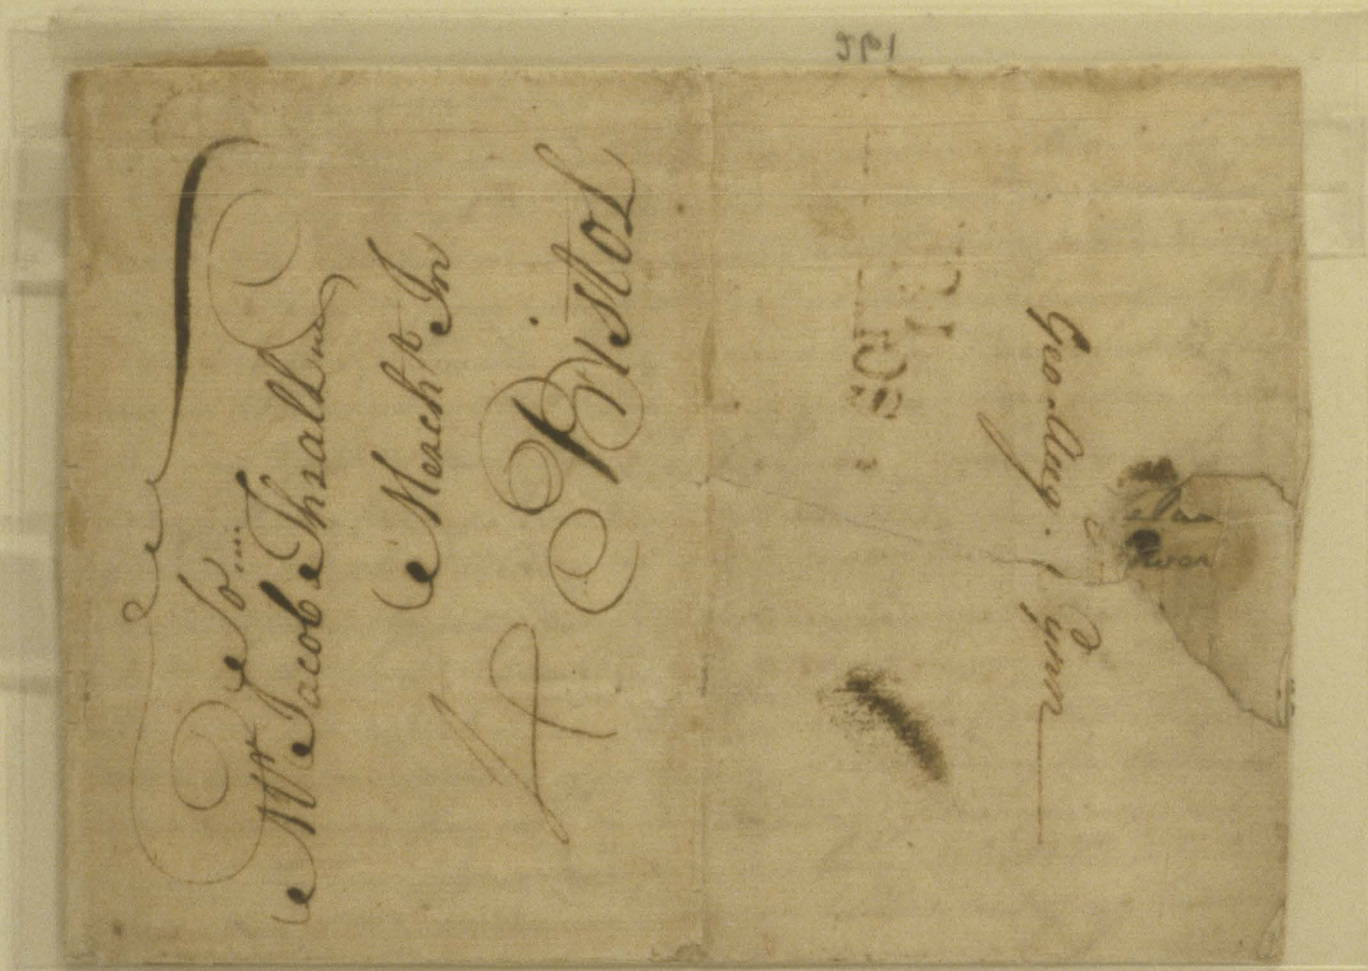 To
Mr Jacob Thrall
Mercht In
Bristol
4
Geo. Aug. Lynn